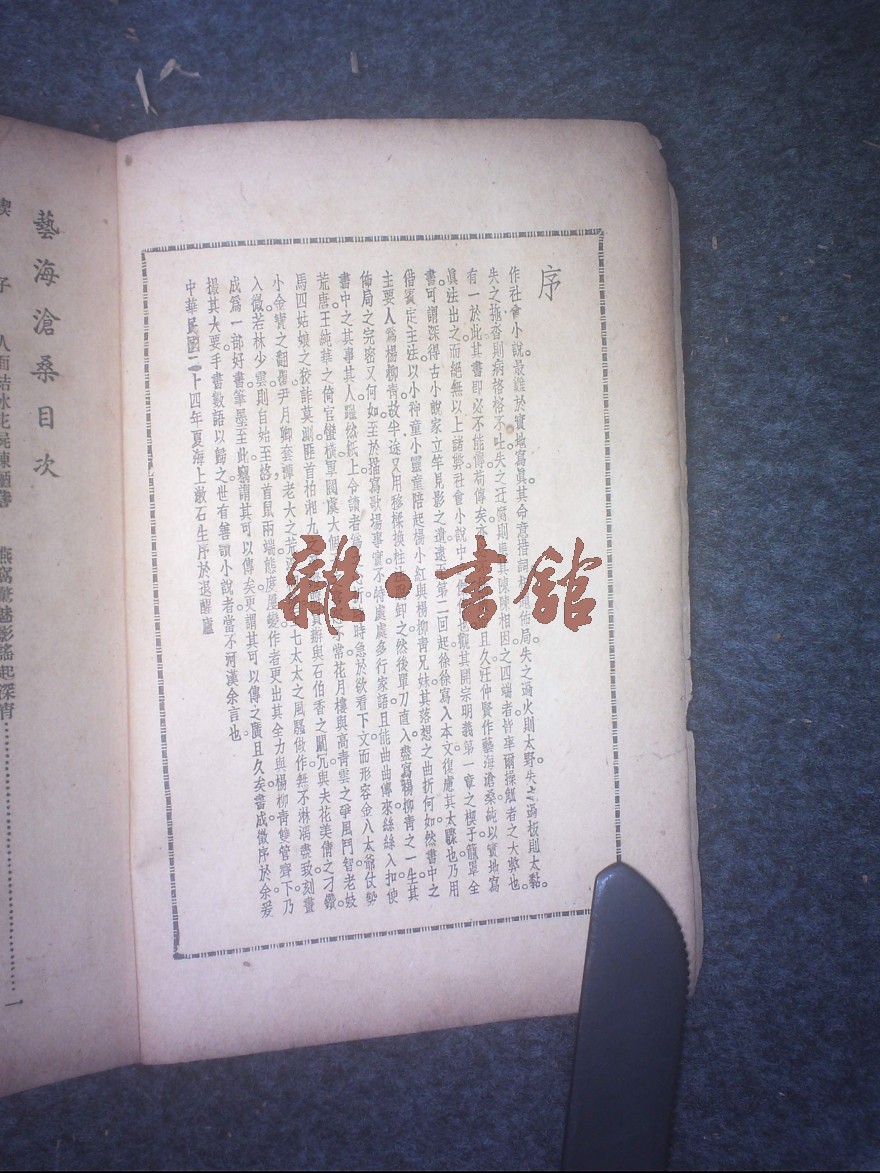 序
作社會小說。最難於實地寫眞。其命意措詞佈局。失之過火則太野。失之過板則太黏。
失之拖沓則病格格不吐。失之狂則陳陳相因。之四端者皆率爾操觚者之大弊也。
有一於此其書即必不能傳。苟傳矣亦且久。汪仲賢作藝海滄桑。純以實地寫
眞法出之。而絕無以上諸弊。社會小說中也。觀其開宗明義第一章之楔子。籠罩全
書。可謂深得古小說家立竿見影之遺。迨至第二回起。徐徐寫入本文。復慮其太驟也。乃用
借賓定主法。以小神童小靈童陪起楊小紅與楊柳青兄妹。其落想之曲折何如。然書中之
主要人爲楊柳青。故半途又用移樑換柱卸之。然後單刀直入。盡寫楊柳青之一生。其
佈局之完密又何如。至於描寫歌場事實。不特處處多行家語。且能曲曲傳來。絲絲入扣。使
書中之其事其人躍然紙上。令讀者時急於欲看下文。而形容金八太爺仗勢
荒唐。王純華之倚官蠻橫。軍閥虞大個常花月樓與高青雲之爭風鬥智。老妓
馬四姑娘之狡詐莫測。匪首柏湘九之辦與石伯香之闊冗。與夫花美倩之刁鑽。
小金寶之翻覆。尹月卿套譚老大之荒七太太之風騷做作。無不淋漓盡致。刻畫
入微。若林少雲則自始至終首鼠兩端。態度屢變。作者更出其全力。與楊柳青雙管齊下。乃
成爲一部好書。筆墨至此。竊謂其可以傳矣。更謂其可以傳之廣且久矣。書成徵序於余。爰
撮其大要。手書數語以歸之。世有善讀小說者。當不河漢余言也。
中華民國二十四年夏海上漱石生序於退醒廬
藝海滄桑目次
楔子 人面桔冰花屍陳
燕窩驚魅影謠起深宵 1
雜·書館